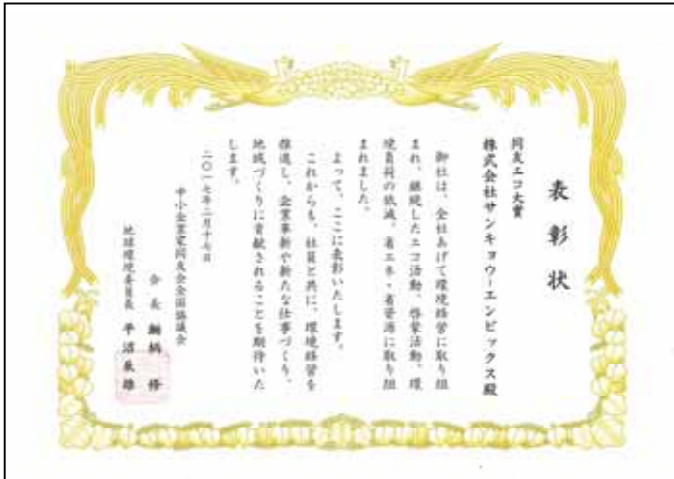 表彰状
同友エコ大賞
株式会社サンキョウ-エンビックス殿
御社は、全社あげて環境経営に取り組
まれ、継続したエコ活動、啓蒙活動、環
境負荷の低減、省エネ・省資源に取り組
まれました。
よって、ここに表彰いたします。
これからも、社員と共に、環境経営を
推進し、企業革新や新たな仕事づくり、
地域づくりに貢献されることを期待いた
します。
二〇一七年二月十七日
中小企業家同友会全国協議会
会長 鋤柄 修
地球環境委員長 平沼辰雄